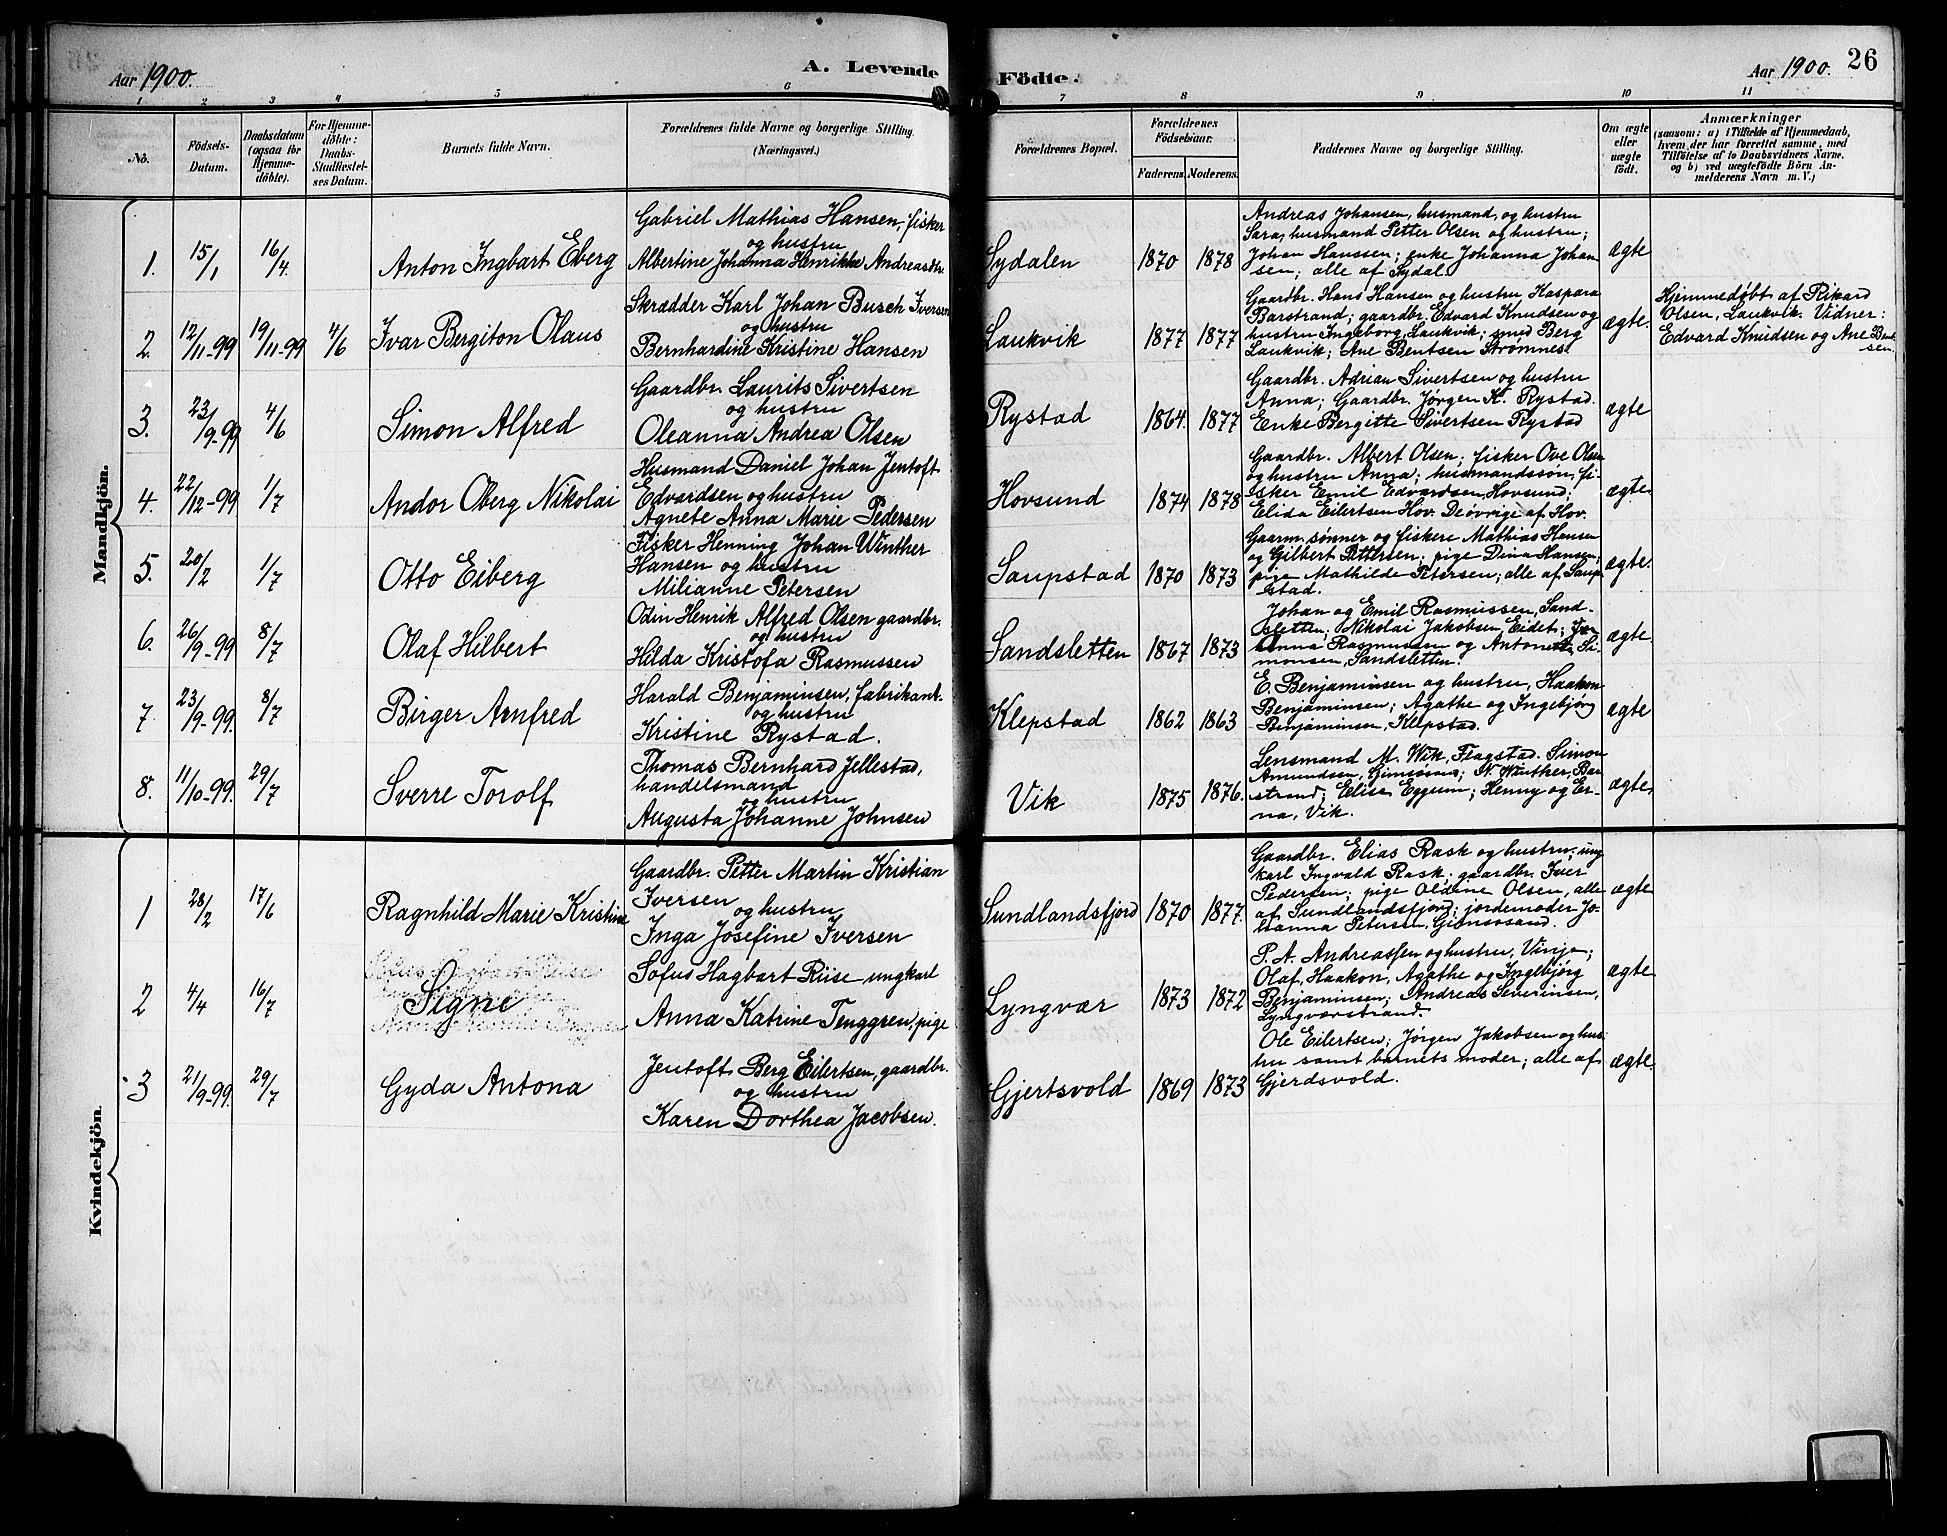 Aar 1900.
A. Levende
Födte.
Aar 1900. 26
1 2 3 4 5 6 7 8 9 10 11
No.
Födsels-
Datum.
Daabsdatum
(ogsaa for
Hjemme-
döbte).
For Hjemme-
döbte:
Daabs-
Stadfæstel-
ses Datum.
Barnets fulde Navn.
Forældrenes fulde Navne og borgerlige Stilling.
(Næringsvei.)
Forældrenes Bopæl.
Forældrenes
Födselsaar.
Faderens. Moderens.
Faddernes Navne og borgerlige Stilling.
Om ægte
eller
uægte
födt.
Anmærkninger
(saasom: a) i Tilfælde af Hjemmedaab,
hvem der har forrettet samme, med
Tilföielse af to Daabsvidners Navne.
og b) ved uægtefödte Börn An-
melderens Navn m. V.)
Mandkjön.
1. 15/1 16/4 Anton Ingbart Eberg
Gabriel Mathias Hansen, fisker
og hustru
Albertine Johanna Henrikka Andreasdtr.
Sydalen 1870 1878
Andreas Johansen, husmand, og hustru
Sara, husmand Petter Olsen og hustru;
Johan Hanssen; enke Johanna Johan
sen; alle af Sydal.
ægte
2. 12/11-99 19/11-99 4/6 Ivar Bergiton Olaus
Skrædder Karl Johan Busch Iversen
og hustru
Bernhardine Kristine Hansen
Laukvik 1877 1877
Gaardbr. Hans Hansen og hustru, Kaspara
Barstrand; gaardbr. Edvard Knudsen og
hustru Ingeborg, Laukvik; smed Berg
Laukvik; Ane Bentsen Strømnes.
ægte.
Hjemmedøbt af Rikard
Olsen, Laukvik. Vidner:
Edvard Knudsen og Ane Bent-
sen.
3. 23/9-99 4/6 Simon Alfred
Gaardbr. Laurits Sivertsen
og hustru
Oleanna Andrea Olsen
Rystad 1864. 1877
Gaardbr. Adrian Sivertsen og hustru
Anna; Gaardbr. Jørgen K. Rystad.
Enke Bergitte Sivertsen Rystad
ægte
4. 22/12-99 1/7 Andor Oberg Nikolai
Husmand Daniel Johan Jentoft
Edvardsen og hustru
Agnete Anna Marie Pedersen
Hovsund 1874 1878
Gaardbr. Albert Olsen; fisker Ove Olsen
og hustru Anna; husmandssøn, fi-
sker Emil Edvardsen, Hovsund;
Elida Eilertsen Hov. De øvrige af Hov.
ægte
5. 20/2 1/7 Otto Eiberg
Fisker Henning Johan Winther
Hansen og hustru
Milianne Petersen
Saupstad 1870 1873
Gaarm. sønner og fiskere Mathias Hansen
og Gilbert Pettersen; pige Dina Hansen;
pige Mathilde Petersen; alle af Saup
stad.
ægte.
6. 26/9-99 8/7 Olaf Hilbert
Odin Henrik Alfred Olsen gaardbr.
og hustru
Hilda Kristofa Rasmussen
Sandsletten 1867 1873
Johan og Emil Rasmussen, Sand-
sletten; Nikolai Jakobsen, Eidet;
Anna Rasmussen og Antonette Si-
monsen, Sandsletten.
ægte
7 23/9-99. 8/7 Birger Arnfred
Harald Benjaminsen, fabrikant
og hustru
Kristine Rystad.
Klepstad 1862 1863
E. Benjaminsen og hustru, Haakon
Benjaminsen; Agathe og Ingebjørg
Benjaminsen, Klepstad.
ægte
8. 11/10-99. 29/7 Sverre Torolf
Thomas Bernhard Jellestad,
handelsmand
og hustru
Augusta Johanne Johnsen
Vik 1875 1876.
Lensmand M. Wik, Flagstad. Simon
Amundsen, Gimsøsand; N. Winther, Bar
strand; Elise Eggum; Henny og Er-
na, Vik.
ægte.
Kvindekjön.
1 28/2 17/6 Ragnhild Marie Kristine
Gaardbr. Petter Martin Kristian
Iversen
og hustru
Inga Josefine Iversen
Sundlandsfjord 1870 1877.
Gaardbr. Elias Rask og hustru; ung
karl Ingvald Rask; gaardbr. Iver
Pedersen; pige Oldine Olsen, alle
af Sundlandsfjord; jordemoder Jo-
hanna Petersen, Gimsøsand.
ægte
2 4/4 16/7 Signe
Sofus Hagbart Riise ungkarl
Anna Katrine Tenggren, pige
Lyngvær 1873 1872
P. A. Andreassen og hustru, Vinje;
Olaf, Haakon, Agathe og Ingebjørg
Benjaminsen; Andreas Severinsen,
Lyngværstrand.
ægte
3 21/9-99. 29/7 Gyda Antona
Jentoft Berg Eilertsen, gaardbr.
og hustru
Karen Dorthea Jacobsen.
Gjertsvold 1869 1873
Ole Eilertsen; Jørgen Jakobsen og hus-
tru samt barnets moder; alle af
Gjerdsvold.
ægte.